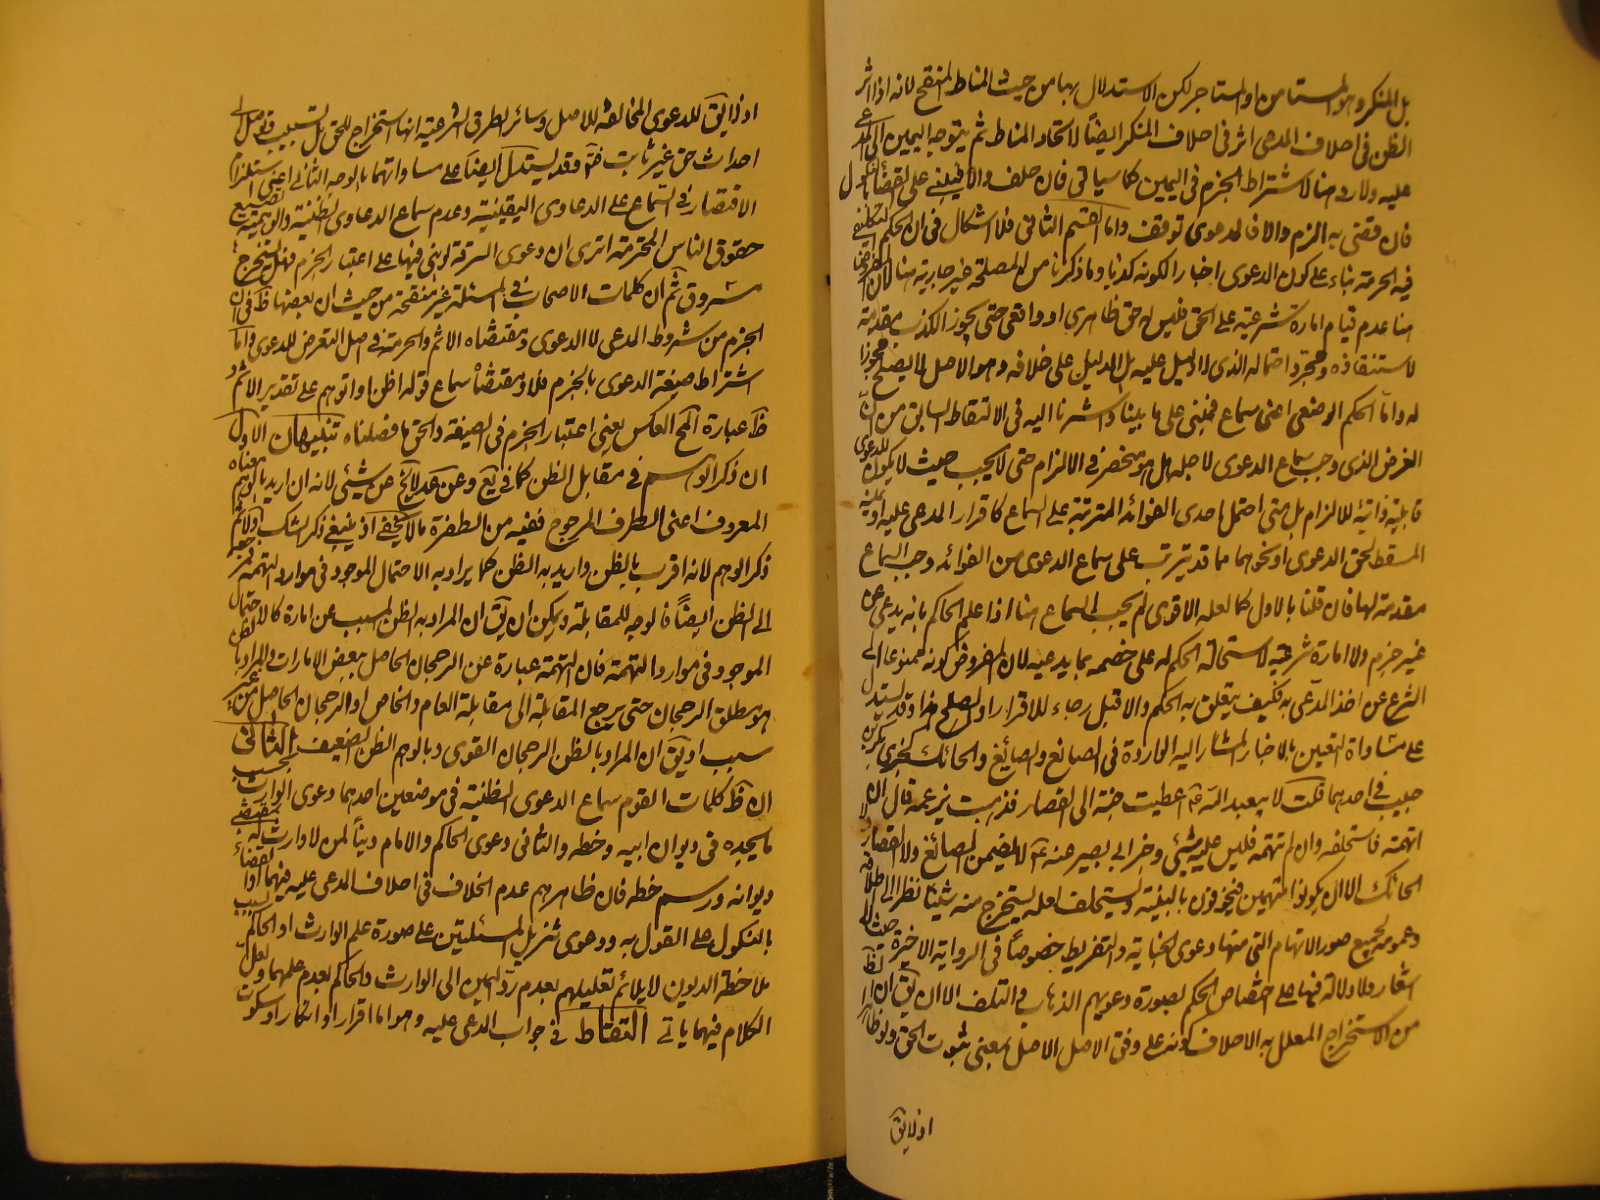 بل المنكر وهو المستامن او المستاجر لكن الاستدلال بها من حيث المناط المنقح لانه اذا اثر
الظن في احلاف المدعى اثر في احلاف المنكر ايضاً لاتحاد المناط ثم يتوجه اليمين الى المدعى
عليه ولا رد هنا لاشتراط الجزم في اليمين كما سياتي فان حلف والا فيبنى على القضاء بالنكول
فان قضى به الزم والا فالدعوى توقف واما القسم الثاني فلا اشكال في ان الحكم التكليفى
فيه الحرمة بناء على كون الدعوى اخبارا لكونه كذبا وما ذكرنا من المصلحة غير جارية هنا لان المفروض
هنا عدم قيام امارة شرعية على الحق فليس له حق ظاهرى او واقعى حتى يجوز الكذب مقدمة
لاستنقاذه ومجرد احتماله الذى لا دليل عليه بل الدليل على خلافه وهو الاصل لا يصلح مجوزا
له واما الحكم الوضعى اعنى سماع فمبنى على ما بينا واشرنا اليه في الالتقاط السابق من ان
الغرض الذى وجب سماع الدعوى لاجله هل هو منحصر في الالزام حتى لا يجب حيث لا يكون للدعوى
قابلية ذاتية للالزام بل متى احتمل احدى الفوائد المترتبة على السماع كاقرار المدعى عليه او بينة
المسقط لحق الدعوى او نحوهما مما قد يترتب على سماع الدعوى من الفوائد وجب السماع
مقدمة لها فان قلنا بالاول كما لعله الاقوى لم يجب السماع هنا اذا علم الحاكم بانه يدعى عن
غير جزم ولا امارة شرعية لاستحالة الحكم له على خصمه بما يدعيه لان المفروض كونه ممنوعا في
الشرع عن اخذ المدعى به فكيف يتعلق به الحكم والا قبل رجاء للاقرار او الصلح هذا وقد يستدل
على مساواة التعيين بالاخبار المشار اليه الواردة في الصانع والصايغ والحائك كخبر بكر بن
حبيب في احدهما قلت لابيعبد الله ع اعطيت جبة الى القصار فذهبت بزعمه قال ان
اتهمته فاستحلفه وان لم تتهمه فليس عليه شيئ وخبر ابى بصير عنه ع لا يضمن الصائغ ولا القصار ولا
الحائك الا ان يكونوا متهمين فيخوفون بالبينة ويستحلف لعله يستخرج منه شيئا نظرا الى اطلاقه
وعمومه لجميع صور الاتهام التى منها دعوى الجناية والتفريط خصوصاً في الرواية الاخيرة حيث لا
اشعار ولا دلالة فيها على اختصاص الحكم بصورة دعويهم الذهاب في التلف الا ان يق ان الظ
من الاستخراج المعلل به الاحلاف كونه على وفق الاصل الاصل بمعنى ثبوت الحق ولو ظاهرا
اذ لا يق
اذ لا يق للدعوى المخالفة للاصل وسائر الطرق الشرعية انها استخراج للحق بل تسبيب وتوصل الى
احداث حق غير ثابت فتم وقد يستدل ايضا على مساواتهما بالوجه الثاني اعنى استلزام
الاقتصار في السماع على الدعاوى اليقينية وعدم سماع الدعاوى الظنية والوهمية تضييع
حقوق الناس المحترمة اترى ان دعوى السرقة لو بنى فيها على اعتبار الجزم فهل يستخرج
مسروق ثم ان كلمات الاصحاب في المسئلة غير منقحة من حيث ان بعضها ظ في ان
الجزم من شروط المدعى لا الدعوى ومقتضاه الاثم والحرمة في اصل التعرض للدعوى واما
اشتراط صيغة الدعوى بالجزم فلا ومقتضاه سماع قوله اظن او اتوهم على تقدير الاثم و
ظ عبارة المح العكس يعنى اعتبار الجزم في الصيغة والحق ما فصلناه تنبيهان الاول
ان ذكر الوهم في مقابل الظن كما في يع وعن عد لا يخ عن شيئى لانه ان اريد بالوهم معناه
المعروف اعنى الطرف المرجوح ففيه من الطفرة ما لا يخفى اذ ينبغى ذكر الشك ولا ثم
ذكر الوهم لانه اقرب بالظن واريد به الظن كما يراد به الاحتمال الموجود في موارد التهمة
الى الظن ايضاً فلا وجه للمقابلة ويمكن ان يق ان المراد به الظن المسبب عن امارة كالاحتمال
الموجود في موارد التهمة فان التهمة عبارة عن الرجحان الحاصل ببعض الامارات والمراد بالظن
هو مطلق الرجحان حتى يرجع المقابلة الى مقابلة العام والخاص او الرجحان الحاصل من غير
سبب او يق ان المراد بالظن الرجحان القوى وبالوهم الظن الضعيف الثانى
ان ظ كلمات القوم سماع الدعوى الظنية في موضعين احدهما دعوى الوارث بحسب
ما يجده في ديوان ابيه وخطه والثانى دعوى الحاكم والامام ديناً لمن لا وارث له بمقتضى
ديوانه ورسم خطه فان ظاهرهم عدم الخلاف في احلاف المدعى عليه فيهما والقضاء
بالنكول على القول به ودعوى تنزيل المسئلتين على صورة علم الوارث او الحاكم بسبب
ملاحظة الديون لا يلائم تعليلهم بعدم رد اليمين الى الوارث والحاكم بعدم علمهما ولعل
الكلام فيهما ياتى التقاط في جواب المدعى عليه وهو اما اقرار او انكار او سكوت